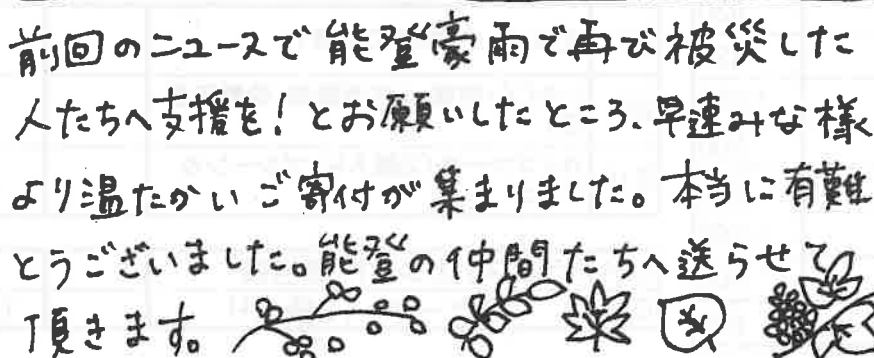 前回のニュースで能登豪雨で再び被災した
人たちへ支援を！とお願いしたところ、早速みな様
より温たかいご寄付が集まりました。本当に有難
とうございました。能登の仲間たちへ送らせて
頂きます。